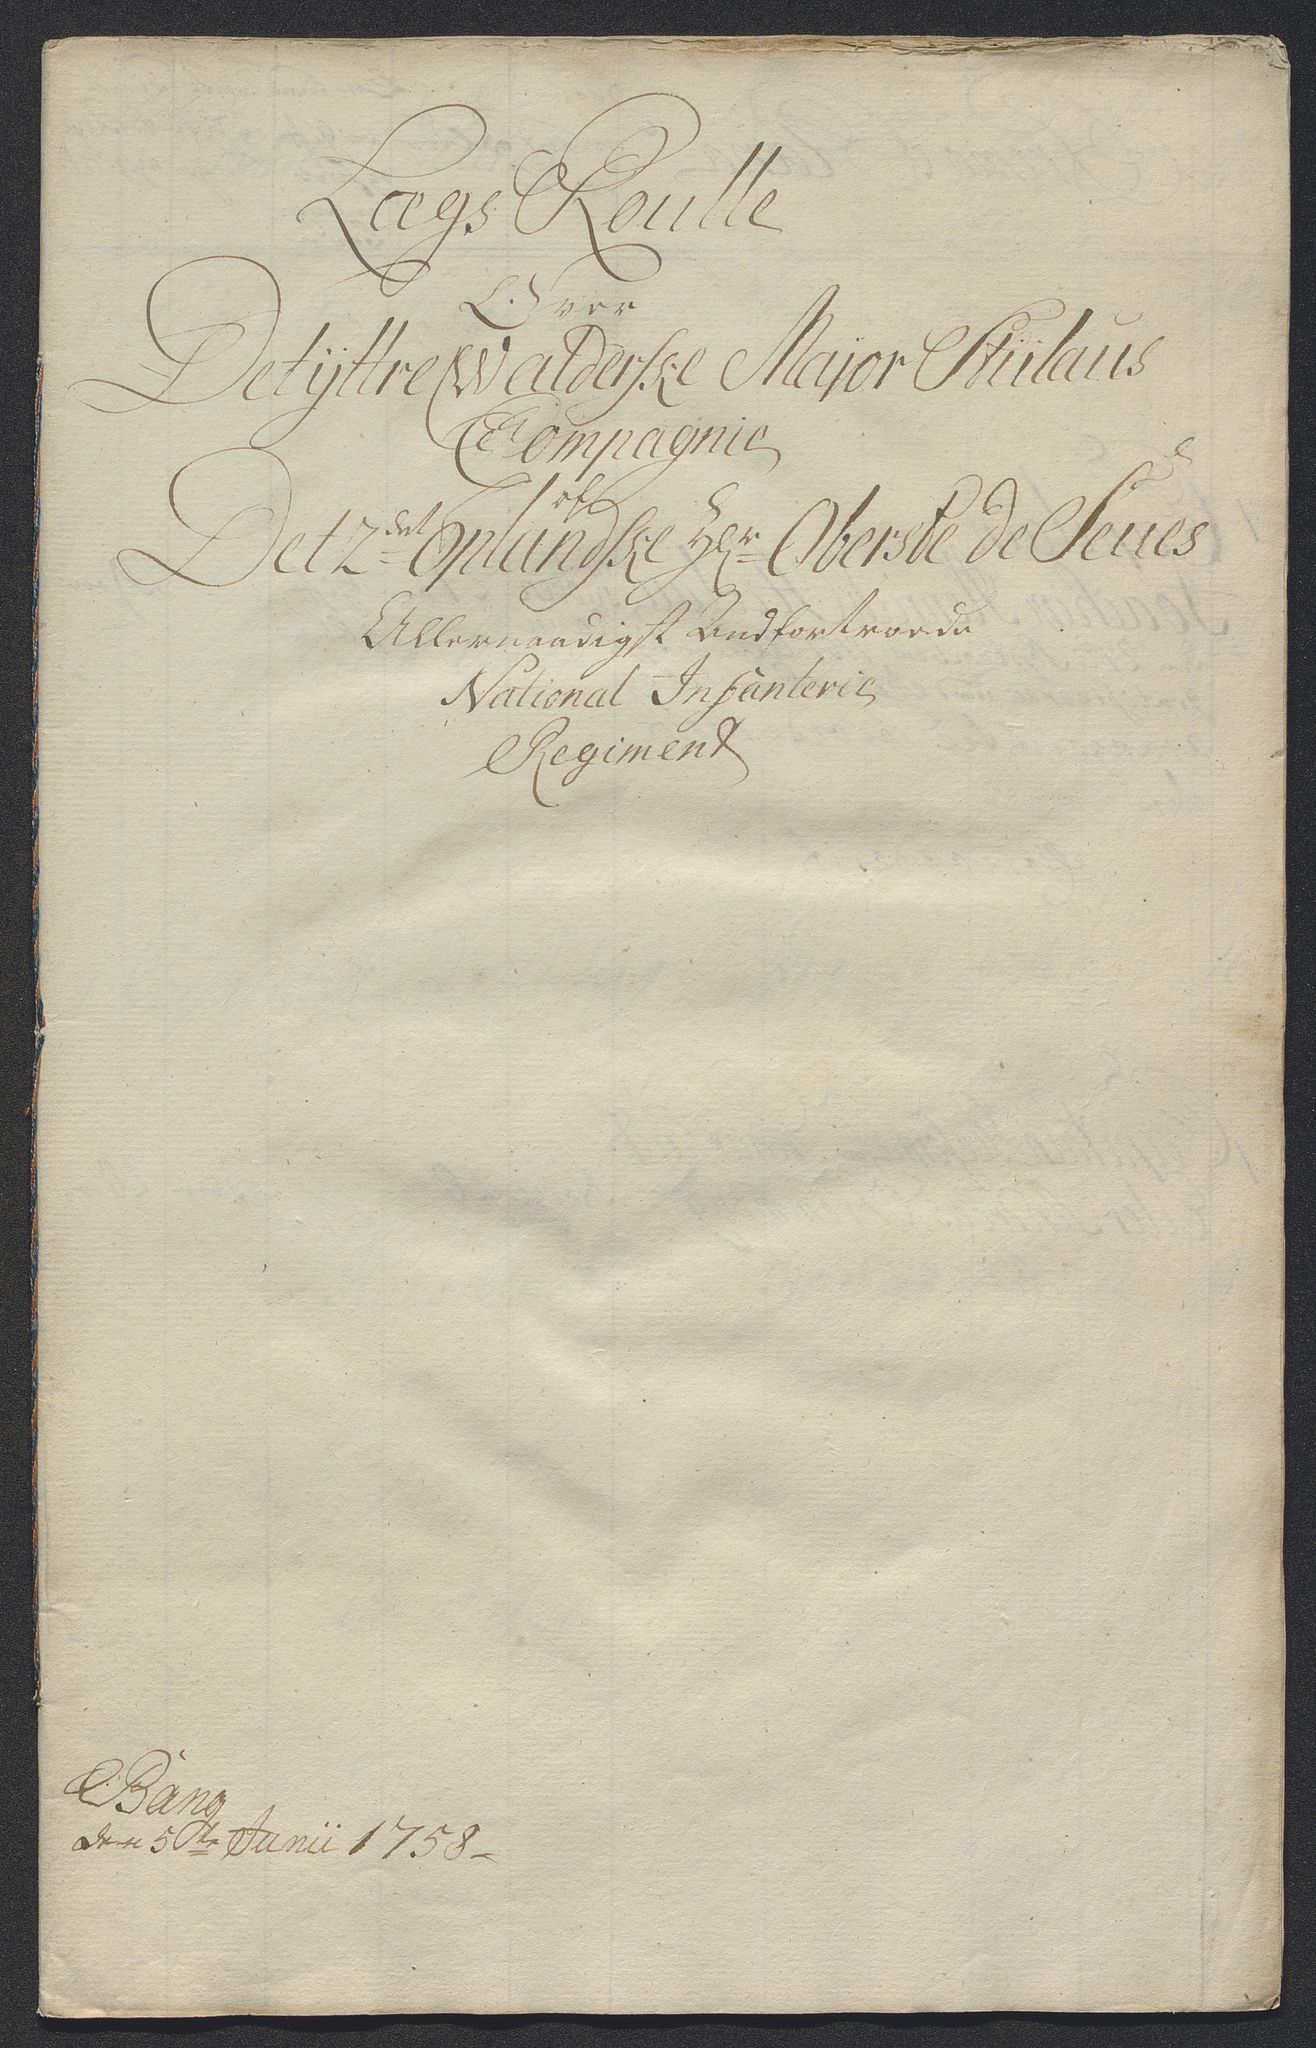 Lægs Roulle
Over
Det ÿttre Walderske Major Stülaus
Compagnie
af
Det 2det Oplandske Hr Oberste de Seues
Allernaadigst Andfortroede
National Infanterie
Regiment
Bang
den 5te Junii 1758